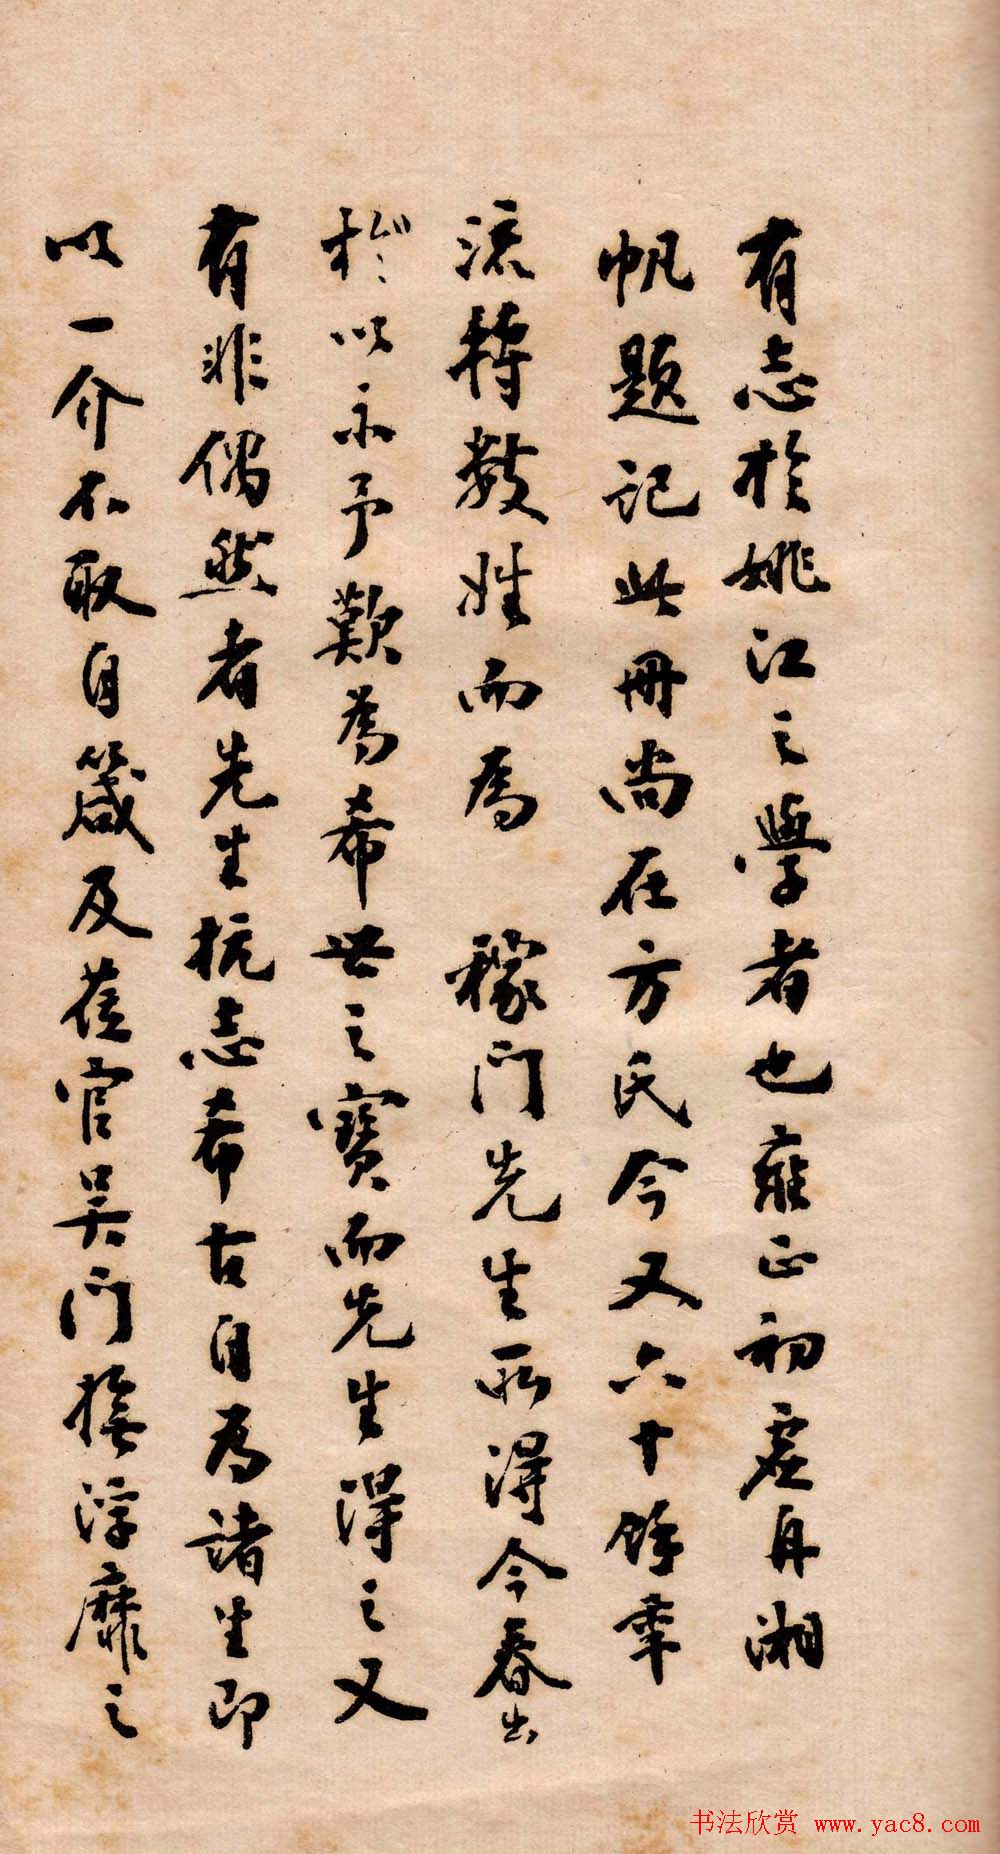 有志於姚江之學者也雍正初虛舟湘
帆題記此冊尚在方氏今又六十餘年
流轉數姓而為　稼門先生所得今春出
於以示予歎為希世之寶而先生得之又
有非偶然者先生抗志希古自為諸生即
以一介不取自箴及蒞官吳門撫浮靡之
书法欣赏 www.yac8.com